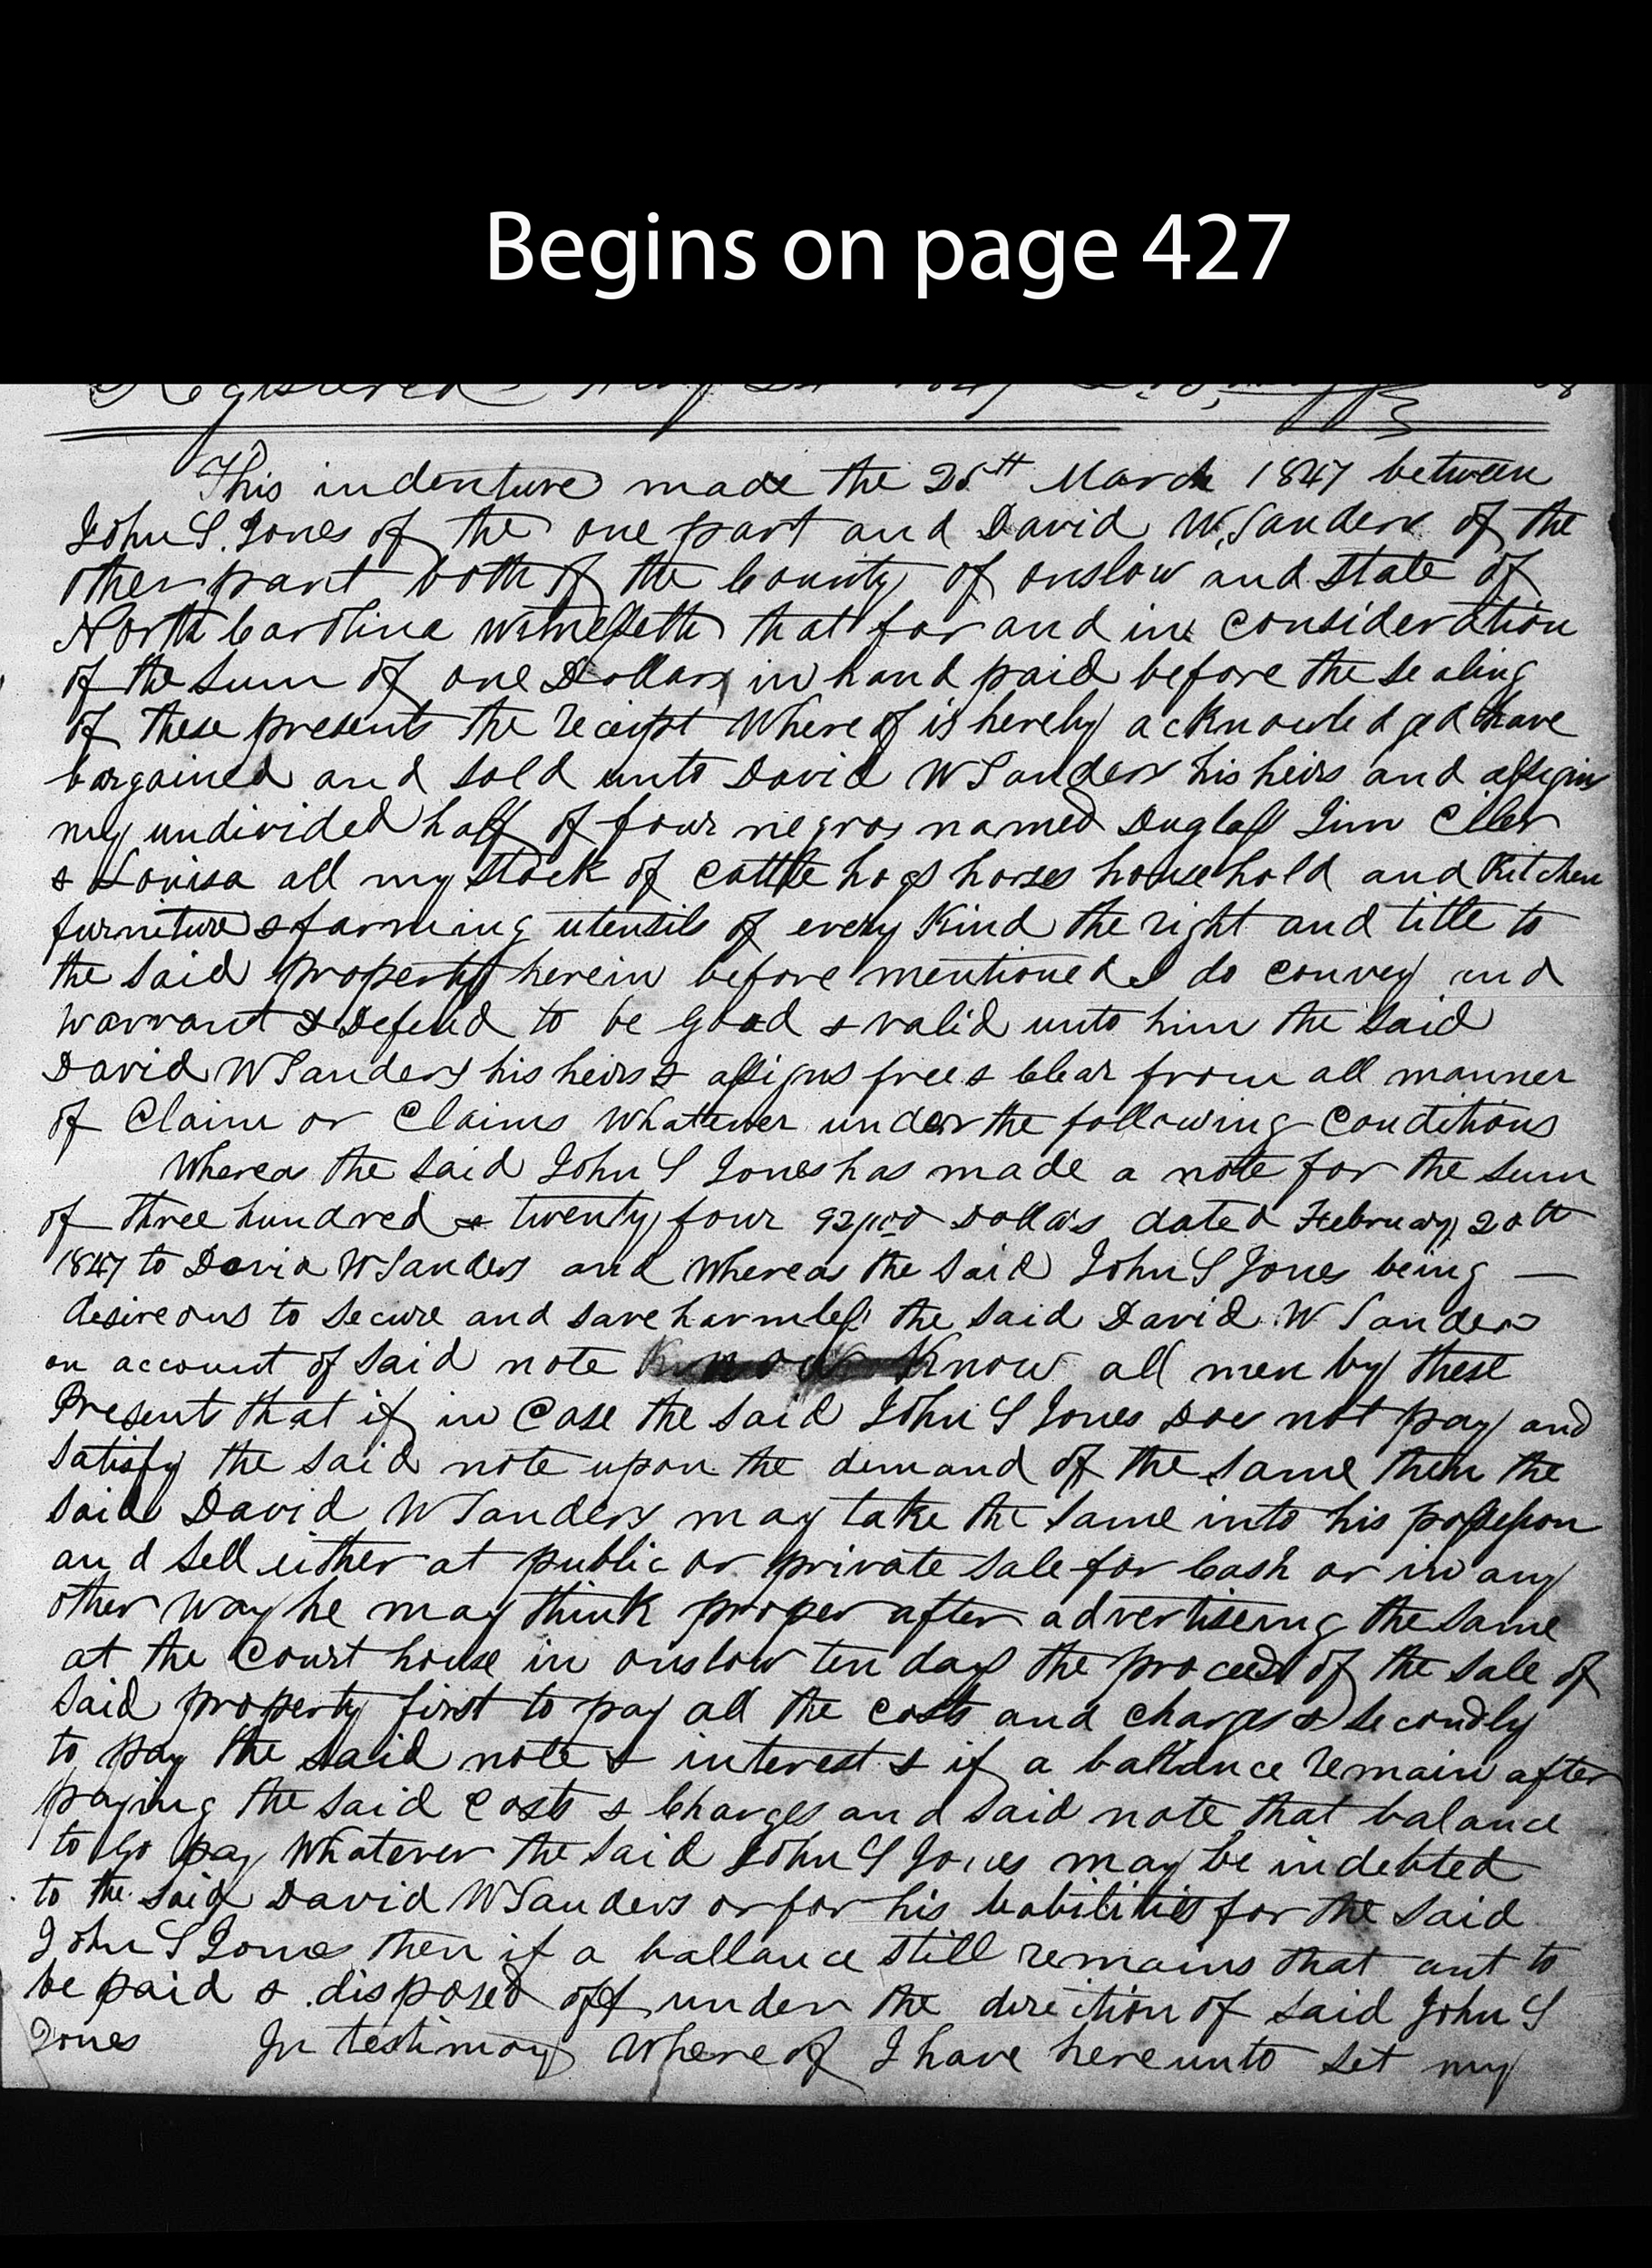 Begins on page 427
Registered 1847
This indenture made the 25th March 1847 between
John S. Jones of the one part and David W. Sanders of the
other part both of the County of onslow and State of
North Carolina witnesseth that for and in consideration
of the Sum of one Dollars in hand paid before the sealing
of these presents the receipt Where of is hereby acknowledged have
bargained and sold unto David W Sanders his heirs and assigns
my undivided half of four negros named Duglass Jim
& Louisa all my stock of cattle hogs horses house hold and Kitchen
furniture & farming utensils of every Kind the right and title to
the said property herein before mentioned I do convey and
warrant & Defend to be good & valid unto him the said
David W Sanders his heirs & assigns free & Clear from all manner
of Claim or Claims Whatever under the following Conditions
Whereas the said John S Jones has made a note for the sum
of three hundred & twenty four 92/100 Dollars dated February 20th
1847 to David W Sanders and Whereas the said John S Jones being —
desireous to secure and save harmless the said David W Sanders
on account of said note Know all men by these
Presents that if in Case the said John S Jones Does not pay and
satisfy the said note upon the demand of the same then the
said David W Sanders may take the same into his possession
and sell either at public or private sale for Cash or in any
other way he may think proper after advertiseing the same
at the Court house in onslow ten days the proceeds of the sale of
said property first to pay all the costs and charges & secondly
to pay the said note & interest & if a ballance remain after
paying the said costs & Charges and said note that balance
to go pay Whatever the said John S Jones may be indebted
to the said David W Sanders or for his liabilities for the said
John S Jones then if a ballance still remains that aut to
be paid & disposed off under the direction of said John S
Jones In testimony Where of I have here unto set my